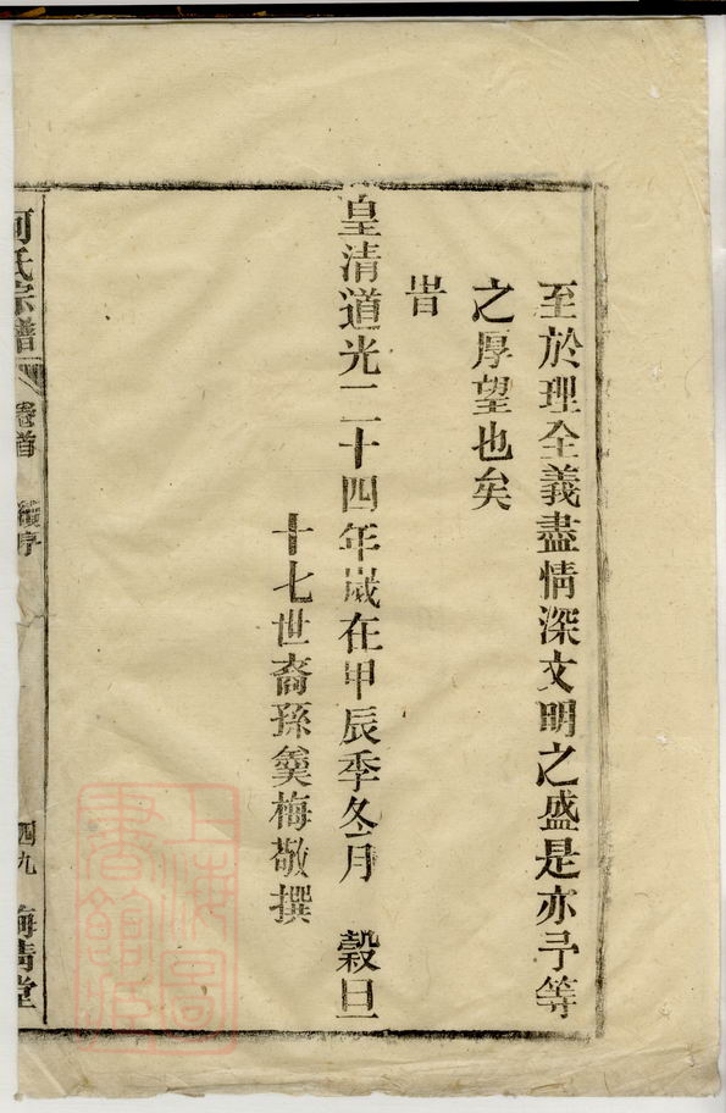 至於理全義盡情深文明之盛是亦予等
之厚望也矣
旹
皇清道光二十四年歲在甲辰季冬月 穀旦
十七世裔孫羹梅敬撰
何氏宗譜 卷首 續序 四九 梅清堂
上海圖書館藏